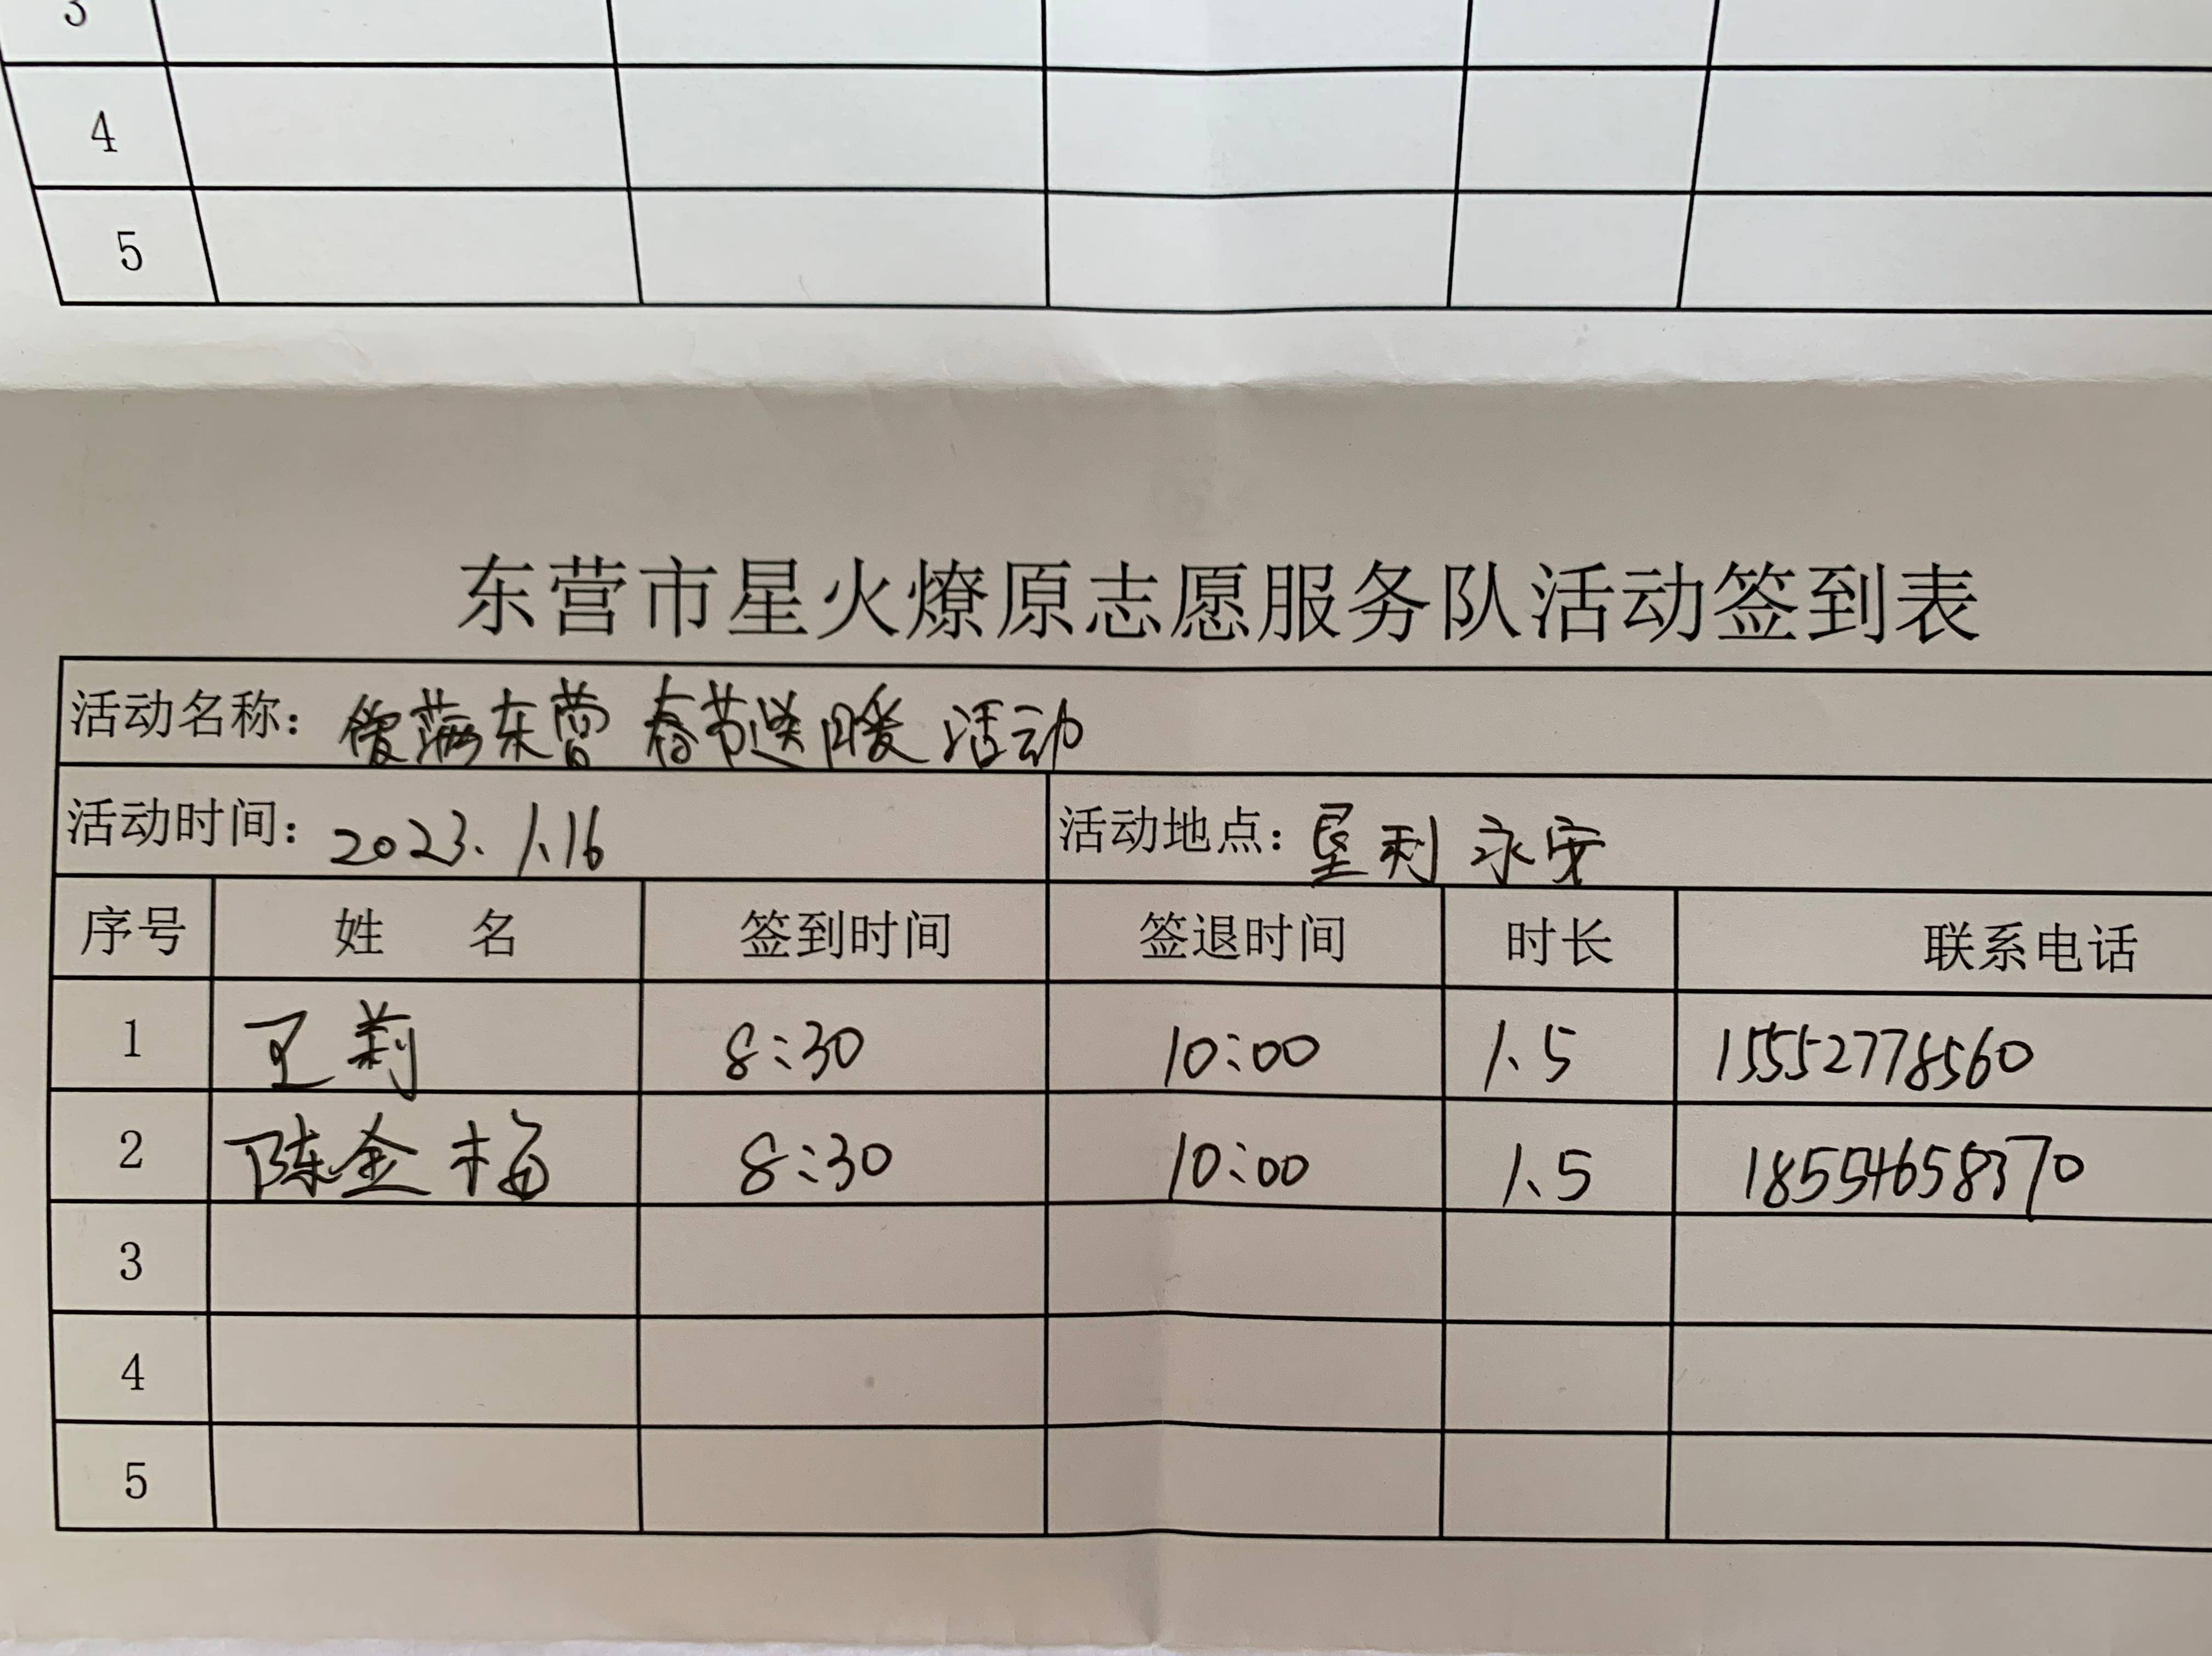 3
4
5
东营市星火燎原志愿服务队活动签到表
活动名称: 爱满东营 春节送暖 活动
活动时间: 2023.1.16 活动地点: 垦利 永安
序号 姓 名 签到时间 签退时间 时长 联系电话
1 王莉 8:30 10:00 1.5 15552778560
2 陈金梅 8:30 10:00 1.5 18554658370
3
4
5